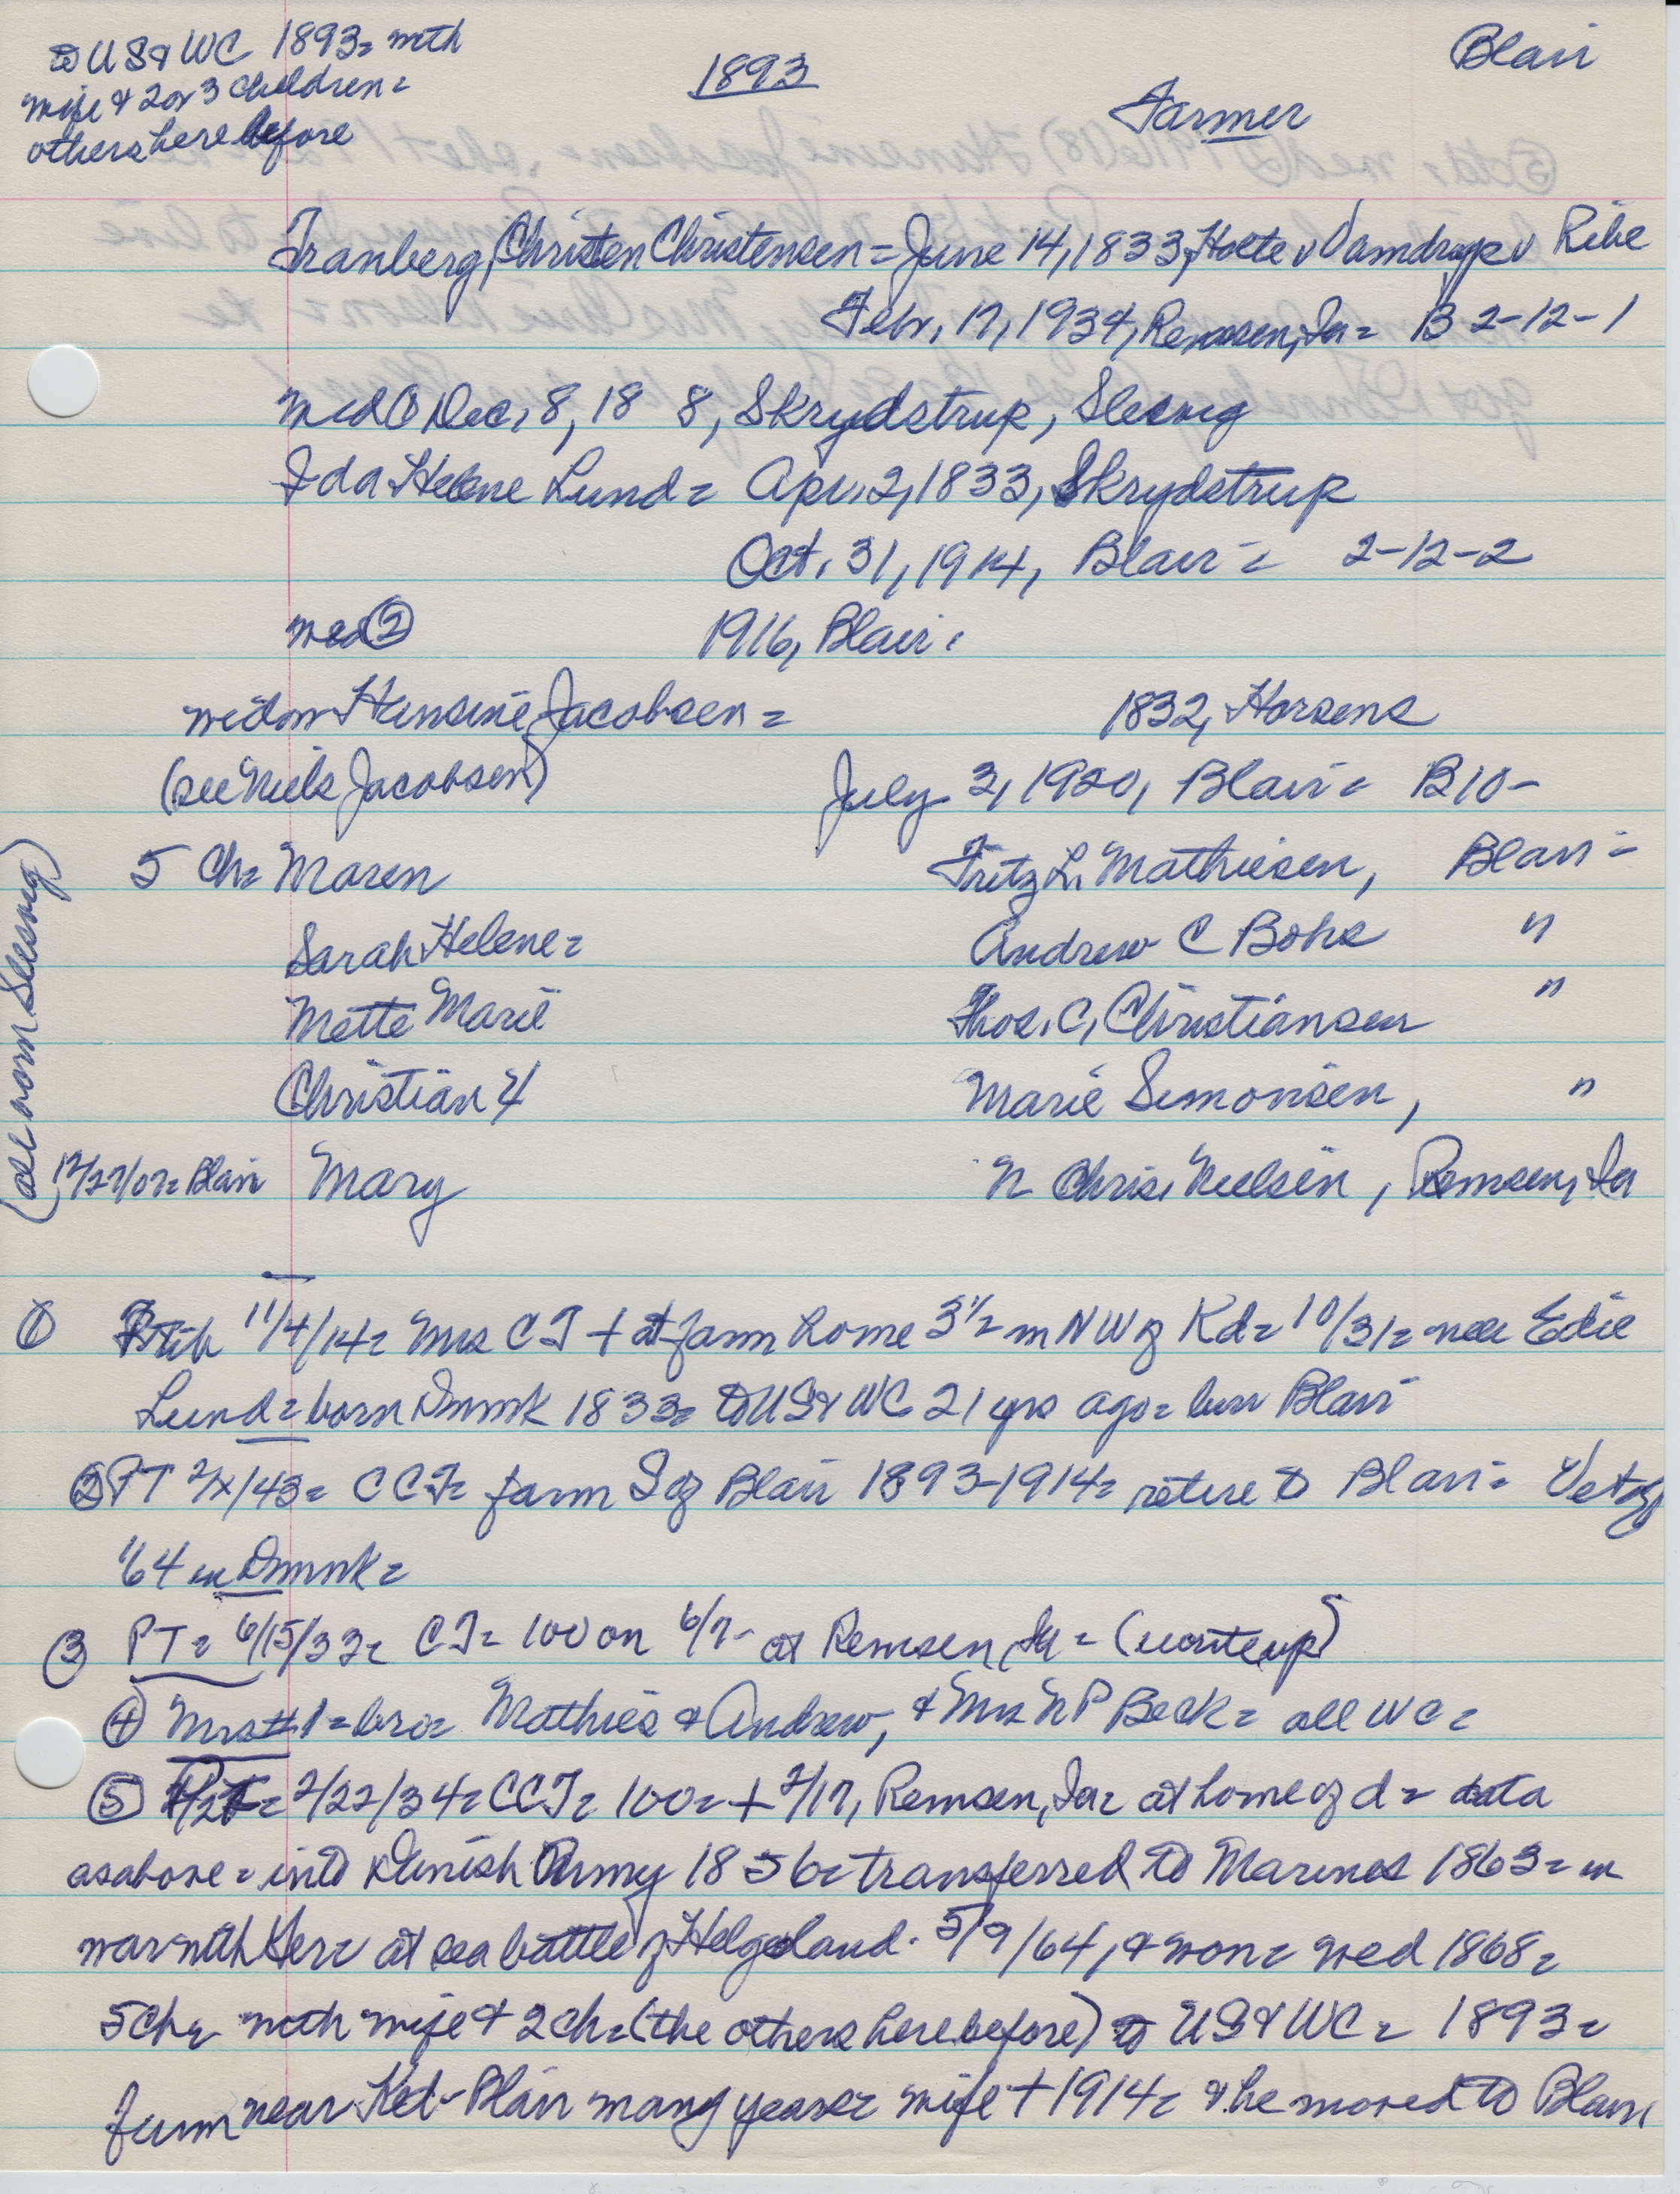 to US & WC 1893= with
wife & 2 or 3 children=
others here before
1893
Blair
Farmer
Tranberg, Christen Christensen = June 14, 1833, Holte v Vamdrup v Ribe
Febr, 17, 1934, Remsen, Ia = B 2-12-1
wed ① Dec, 8, 18 8, Skrydstrup, Slesvig
Ida Helene Lund = Apr. 2, 1833, Skrydstrup
Oct. 31, 1914, Blair = 2-12-2
wed ② 1916, Blair,
widow Hansine Jacobsen = 1832, Horsens
(see Niels Jacobsen) July 3, 1920, Blair = B10-
5 Ch= Maren Fritz L. Mathiesen, Blair =
Sarah Helene= Andrew C Bohs "
Mette Marie Thos. C, Christiansen "
Christian 4 Marie Simonsen, "
12/27/07= Blair Mary N Chris, Nielsen, Remsen, Ia
(all born Slesvig)
① 11/4/14= Mrs CT + at farm home 3 1/2 m NW of Kd= 10/31= nee Edie
Lund= born Dnmk 1833= to US & WC 21 yrs ago= bur Blair
② PT 2/ /43= CCT= farm S of Blair 1893-1914= retire to Blair= Vet of
'64 in Dnmk=
③ PT= 6/15/33= CT= 100 on 6/7- at Remsen, Ia = (write up)
④ Mrs #1= bro= Mathies & Andrew, & Mrs N P Beck= all WC=
⑤ = 2/22/34= CCT= 100= + 2/17, Remsen, Ia= at home of d = data
as above = into Danish Army 1856= transferred to Marines 1863= in
war with Ger= at sea battle of Helgoland. 5/9/64, & won= wed 1868=
5 ch= with wife & 2 ch=(the others here before) to US & WC= 1893=
farm near Ked-Blair many years= wife + 1914= & he moved to Blair,